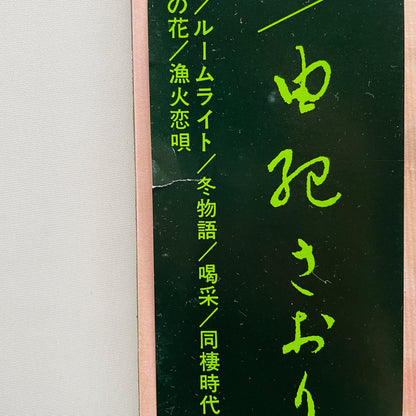 ／由紀さおり
／ルームライト／冬物語／喝采／同棲時代
の花／漁火恋唄